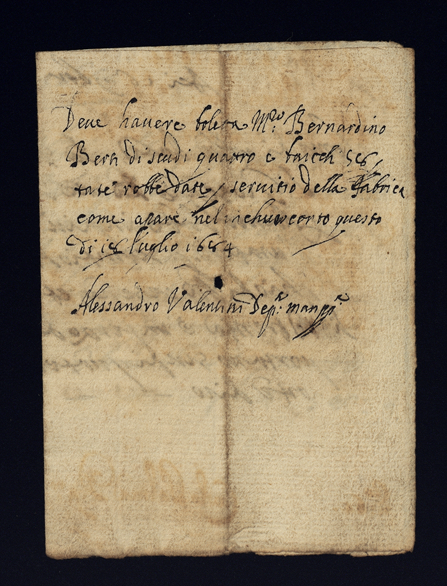 Deve havere bolletta M.ro Bernardino
Berti di scudi quatro e baiochi 56
tate robbe date p servitio della fabrica
come apare nel questo
di 18 luglio 1684
Alessandro Valentini Dep.to